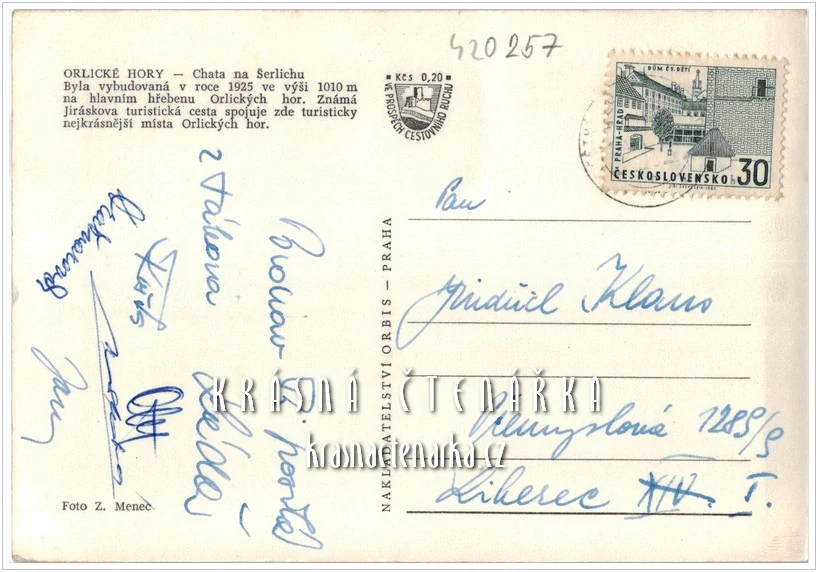 420257
ORLICKÉ HORY — Chata na Šerlichu
Byla vybudovaná v roce 1925 ve výši 1010 m
na hlavním hřebenu Orlických hor. Známá
Jiráskova turistická cesta spojuje zde turisticky
nejkrásnější místa Orlických hor.
Kčs 0,20
VE PROSPĚCH CESTOVNÍHO RUCHU
DŮM ČS. DĚTÍ
PRAHA-HRAD
ČESKOSLOVENSKO
30
h
z tábora
Pan
Jindřich Klaus
Přemyslova 1289/9
Liberec XIV. I.
NAKLADATELSTVÍ ORBIS — PRAHA
KRÁSNÁ ČTENÁŘKA
krasnactenarka.cz
Foto Z. Menec